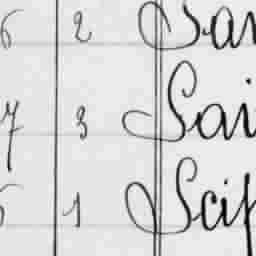 6 2 San
7 3 Sai
5 1 Scip